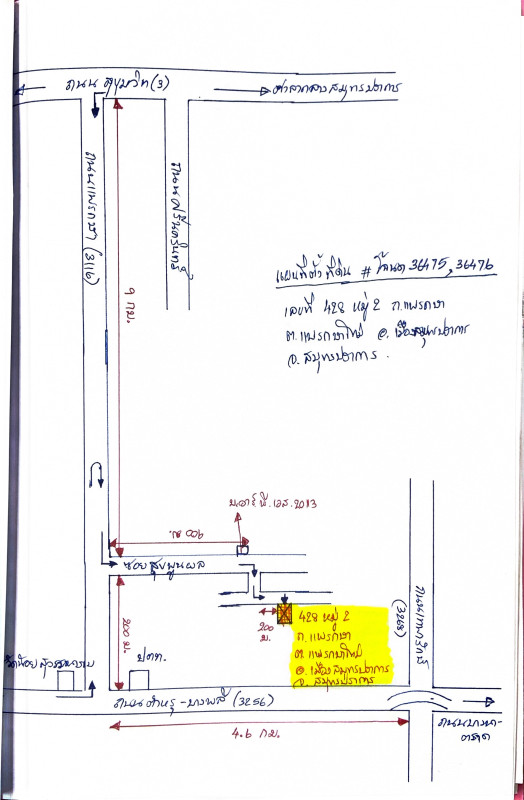 ถนน สุขุมวิท (3)
ศาลากลางสมุทรปราการ
ถนนแพรกษา (3116)
ถนน ศรีนครินทร์
9 กม.
แผนที่ตั้ง ที่ดิน # โฉนด 36475, 36476
เลขที่ 428 หมู่ 2 ถ.แพรกษา
ต.แพรกษาใหม่ อ.เมืองสมุทรปราการ
จ.สมุทรปราการ.
2013
900 ม.
ซอยสุขพูนผล
200 ม.
200
ม.
428 หมู่ 2
ถ.แพรกษา
ต.แพรกษาใหม่
อ.เมืองสมุทรปราการ
จ.สมุทรปราการ
ถนนเทพารักษ์
(3268)
ปตท.
ถนนตำหรุ-บางพลี (3256)
4.6 กม.
ถนนบางนา-
ตราด